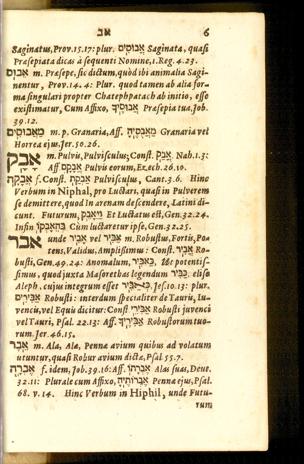 אב 6
Saginatus, Prov. 15.17: plur. אבוסים Saginata, quasi
Præsepiata dicas à sequenti Nomine, 1. Reg. 4.23.
אבוס m. Præsepe, sic dictum, quòd ibi animalia Sagi-
nentur, Prov. 14.4: Plur. quod tamen ab alia for-
ma singulari propter Chatephpatach ab initio, esse
existimatur, Cum Affixo, Præsepia tua, Job.
39.12.
m. p. Granaria, Aff. Granaria vel
Horrea ejus, Jer. 50.26.
אבק m. Pulvis, Pulvisculus; Const. אבק Nah. 1.3:
Aff Pulvis eorum, Ez. ech. 26.10.
f. Const. Pulvisculus, Cant. 3.6. Hinc
Verbum in Niphal, pro Luctari, quasi in Pulverem
se demittere, quod In arenam descendere, Latini di-
cunt. Futurum, ויאבק Et Luctatus est, Gen. 32.24.
Infin בהאבקו Cùm luctaretur ipse, Gen. 32.25.
אבר unde אביר vel אביר m. Robustus, Fortis, Po-
tens, Validus, Amplissimus: Const. אביר Ro-
busti, Gen. 49.24: Anomalum, Ut potentis-
simus, quod juxta Masorethas legendum eliso
Aleph, cujus integrum esset Jes. 10.13: plur.
אבירים Robusti: interdum specialiter de Tauris, Iu-
vencis, vel Equis dicitur: Const. אבירי Robusti juvenci
vel Tauri, Psal. 22.13: Aff. אביריך Robustorum tuo-
rum, Jer. 46.15.
אבר m. Ala, Ala, Penna avium quibus ad volatum
utuntur, quasi Robur avium dictæ, Psal 55.7.
אברה f. idem, Job. 39.16: Aff. אברתו Alas suas, Deut.
32.11: Plurale cum Affixo, אברותיה Penna ejus, Psal.
68. v. 14. Hinc Verbum in Hiphil, unde Futu-
rum